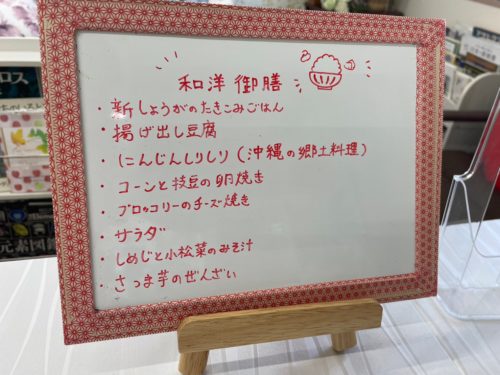 和洋御膳
・新しょうがのたきこみごはん
・揚げ出し豆腐
・にんじんしりしり(沖縄の郷土料理)
・コーンと枝豆の卵焼き
・ブロッコリーのチーズ焼き
・サラダ
・しめじと小松菜のみそ汁
・さつま芋のぜんざい
ロス
元素図鑑